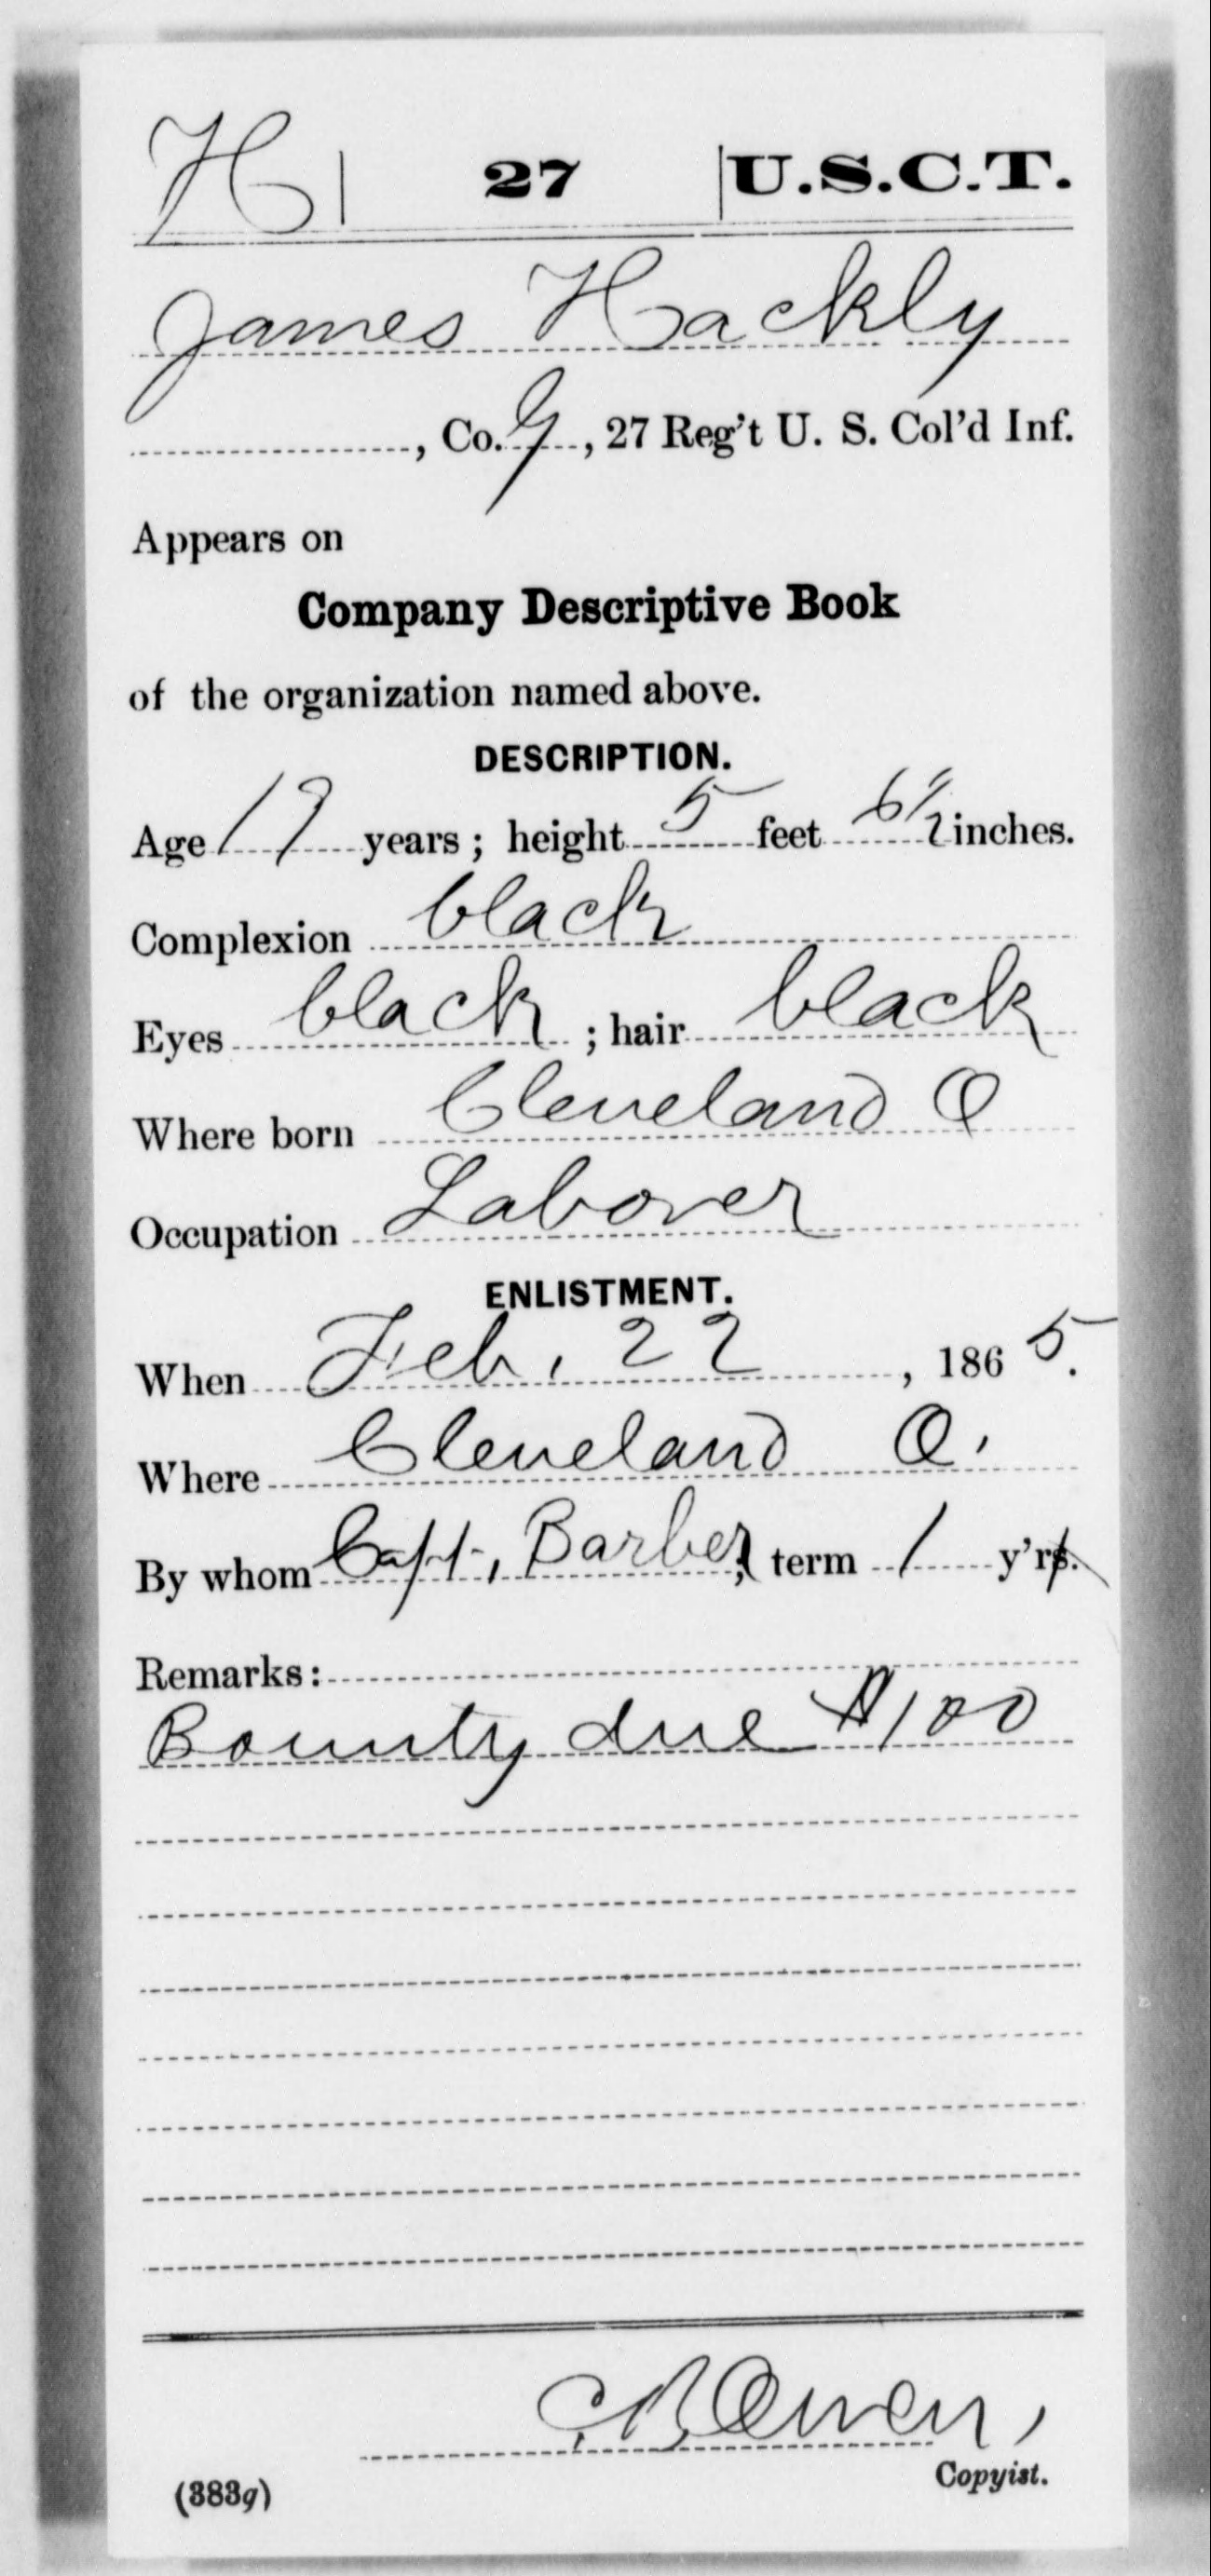 H | 27 | U.S.C.T.
James Hackly
, Co. G, 27 Reg't U. S. Col'd Inf.
Appears on
Company Descriptive Book
of the organization named above.
DESCRIPTION.
Age 19 years; height 5 feet 6 1/2 inches.
Complexion black
Eyes black ; hair black
Where born Cleveland O
Occupation Laborer
ENLISTMENT.
When Feb. 22, 1865.
Where Cleveland O.
By whom Capt. Barber; term 1 y'rs.
Remarks:
Bounty due $100
C B Owen,
Copyist.
(383g)